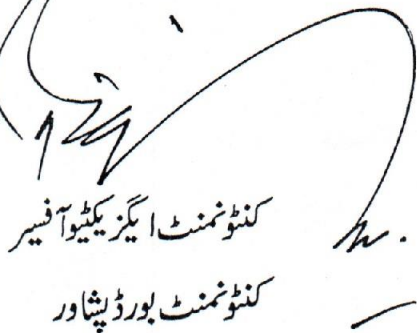 کنٹونمنٹ ایگزیکٹیو آفسیر
کنٹونمنٹ بورڈ پشاور